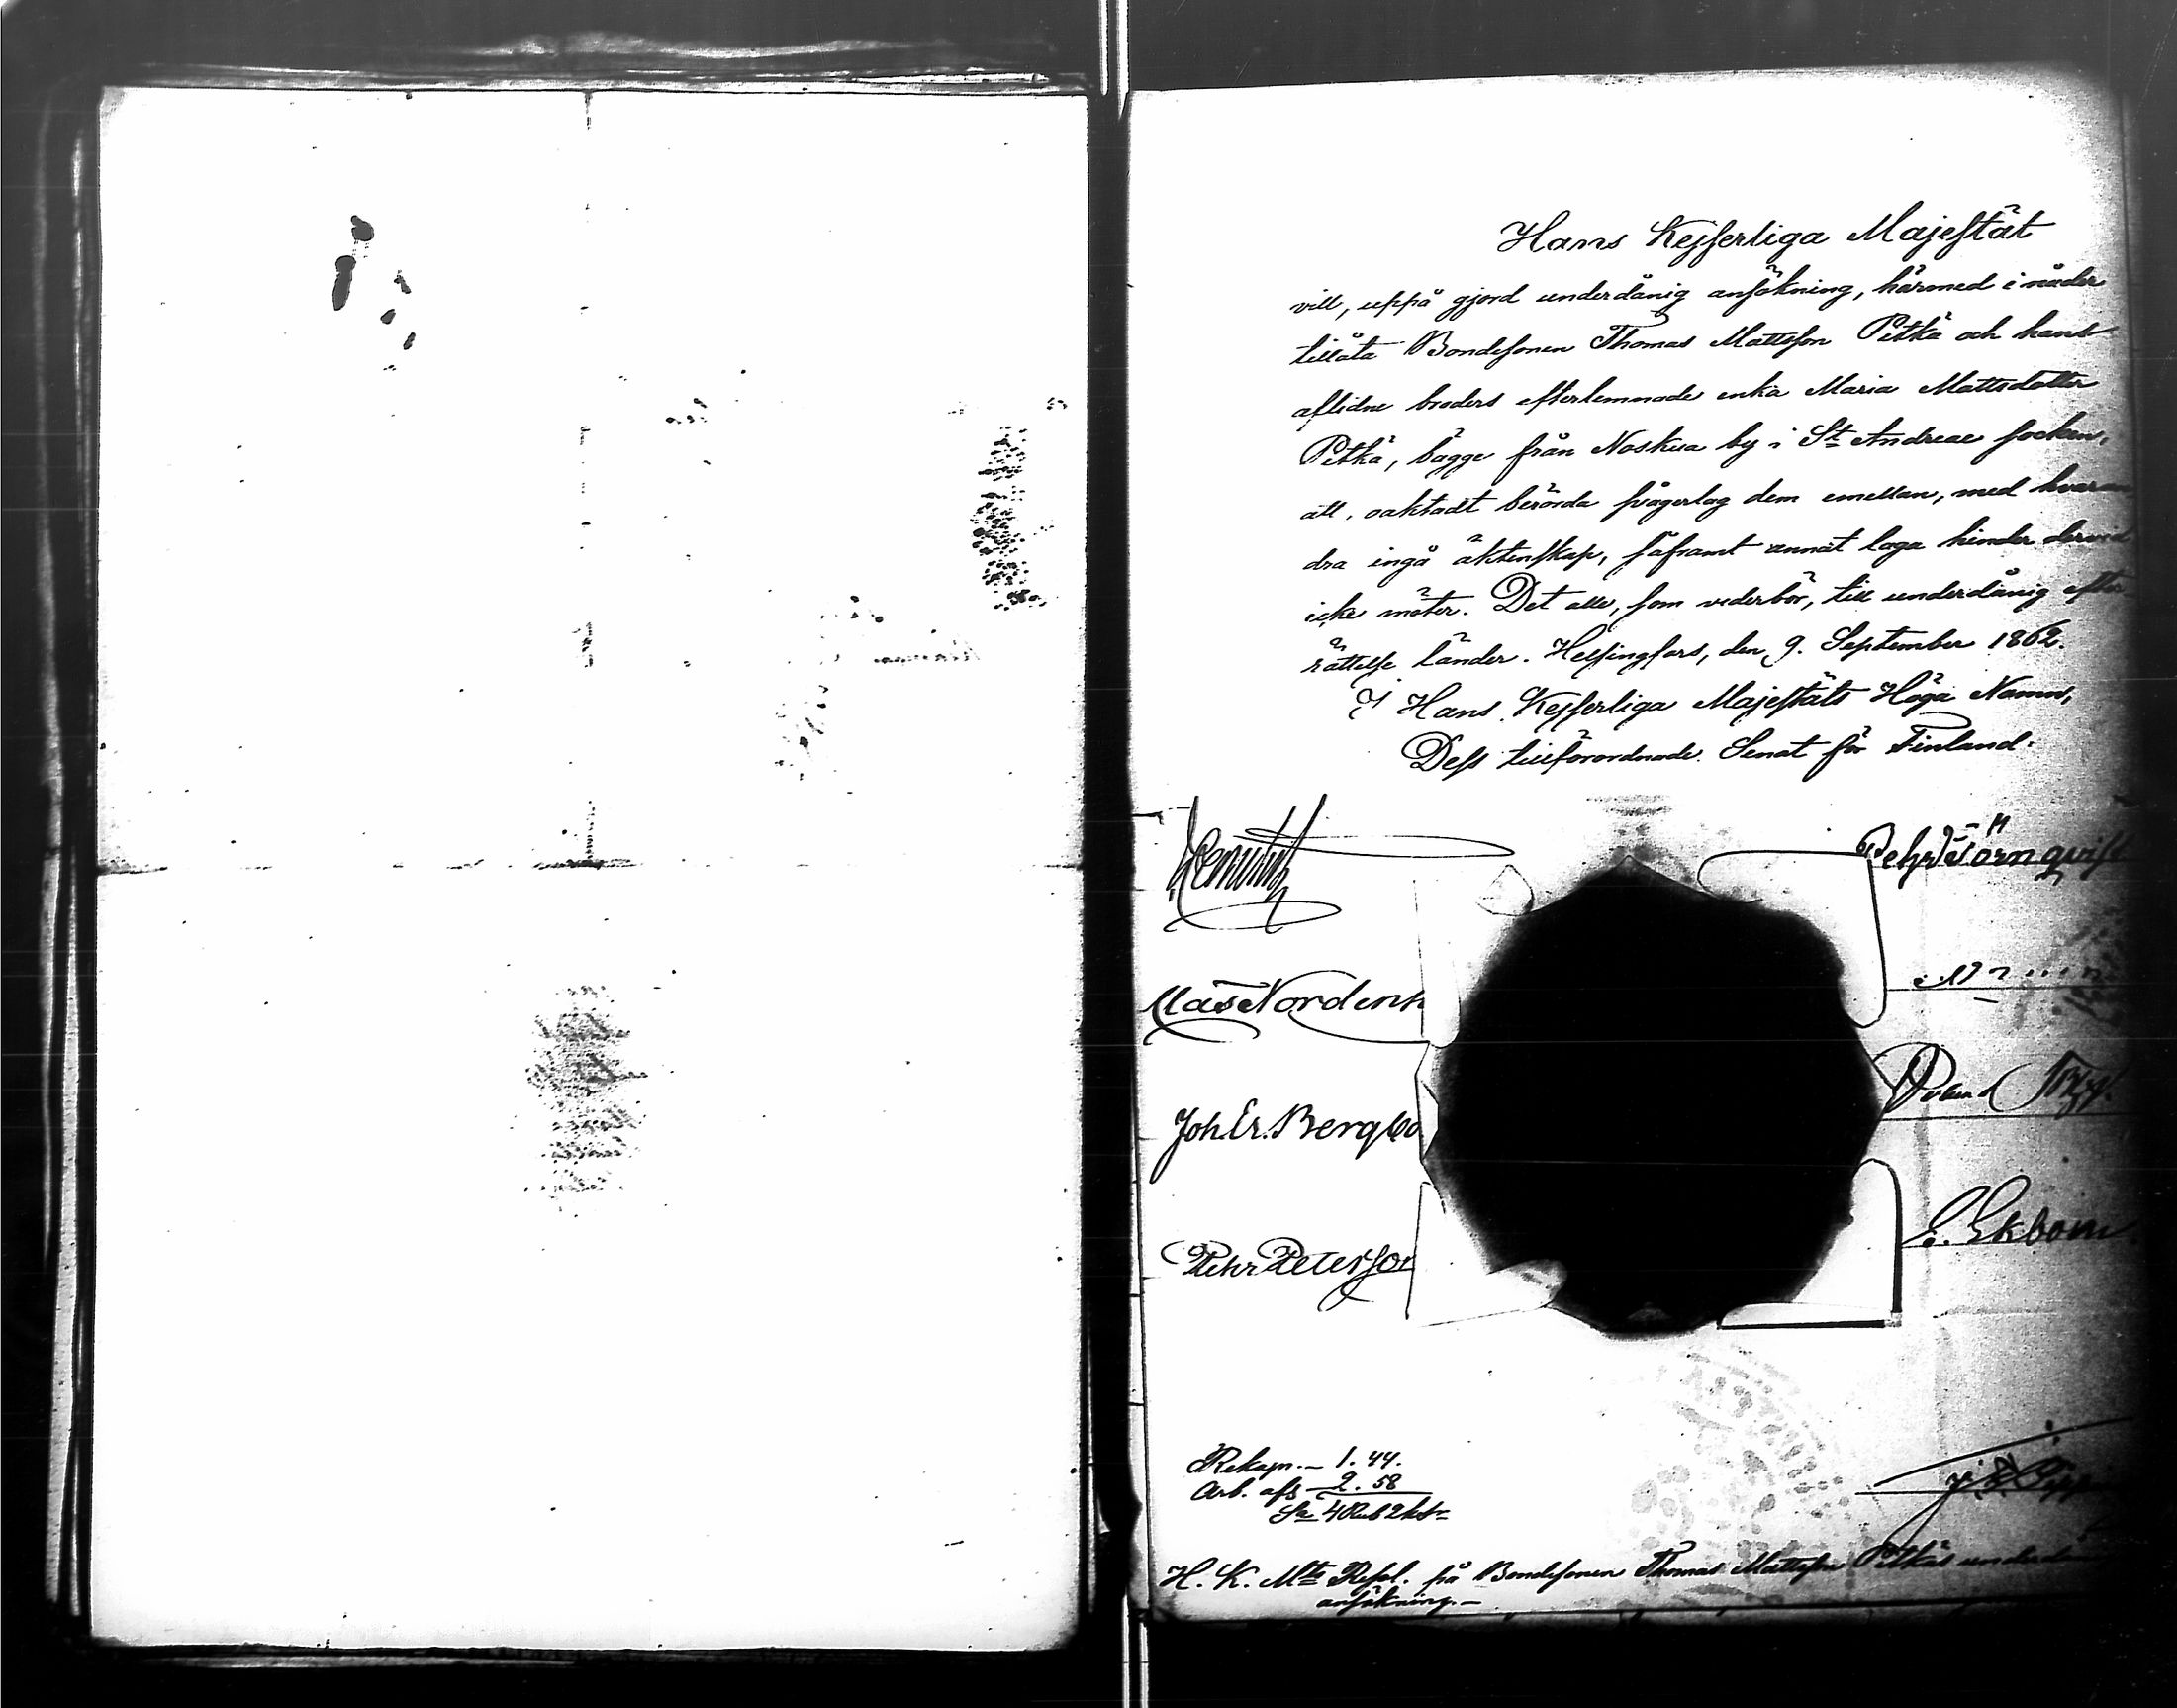 Hans Kejserliga Majestät
vill, uppå gjord underdånig ansökning, härmed i nåder
tillåta Bondesonen Thomas Mattsson Pitkä och hans
aflidne broders efterlemnade enka Maria Mattsdotter
Pitkä, bägge från Noskua by i St Andreae socken,
att, oaktadt berörda svågerlag dem emellan, med hvaran
dra ingå äktenskap, såframt annat laga hinder dervid
icke möter. Det alle, som vederbör, till underdånig efter-
rättelse länder. Helsingfors, den 9. September 1862.
I Hans Kejserliga Majestäts Höga Namn,
Dess tillförordnade Senat för Finland.
Pehr Törnqvist
Clas Nordenh
Joh. Er. Bergbo
E. Ekbom
Pehr Peterson
Rekogn. – 1. 44.
Arb. afs – 2. 58
Sa 4 Rub 2 ks
H. K. Mts Resol. på Bondesonen Thomas Mattsson Pitkäs underdån
ansökning. –